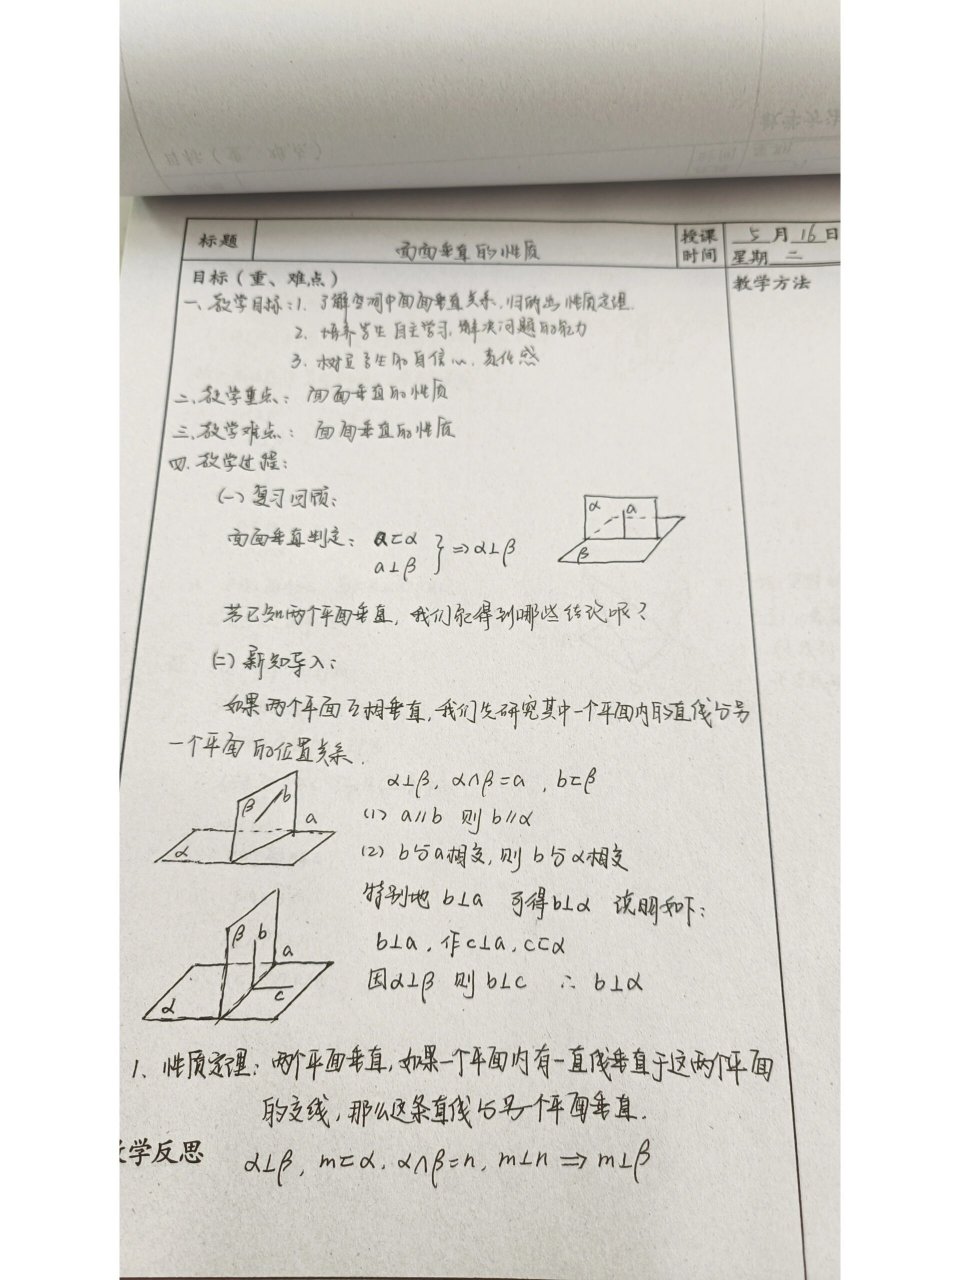 标题 面面垂直的性质 授课时间 5月16日 星期二
目标(重、难点) 教学方法
一、教学目标:1. 了解空间中面面垂直关系,归纳出性质定理.
2. 培养学生自主学习,解决问题的能力
3. 树立学生的自信心,责任感
二、教学重点: 面面垂直的性质
三、教学难点: 面面垂直的性质
四、教学过程:
(一)复习回顾:
面面垂直判定: a⊂α
a⊥β } ⇒ α⊥β
α a
β
若已知两个平面垂直,我们能得到哪些结论呢?
(二)新知导入:
如果两个平面互相垂直,我们先研究其中一个平面内的直线与另
一个平面的位置关系.
α⊥β, α∩β=a , b⊂β
β b a
α
(1) a∥b 则 b∥α
(2) b与a相交,则 b与α相交
特别地 b⊥a 可得b⊥α 说明如下:
b⊥a, 作c⊥a, c⊂α
因α⊥β 则 b⊥c ∴ b⊥α
β b a
α c
1、性质定理: 两个平面垂直,如果一个平面内有一直线垂直于这两个平面
的交线,那么这条直线与另一个平面垂直.
学反思
α⊥β, m⊂α, α∩β=n, m⊥n ⇒ m⊥β